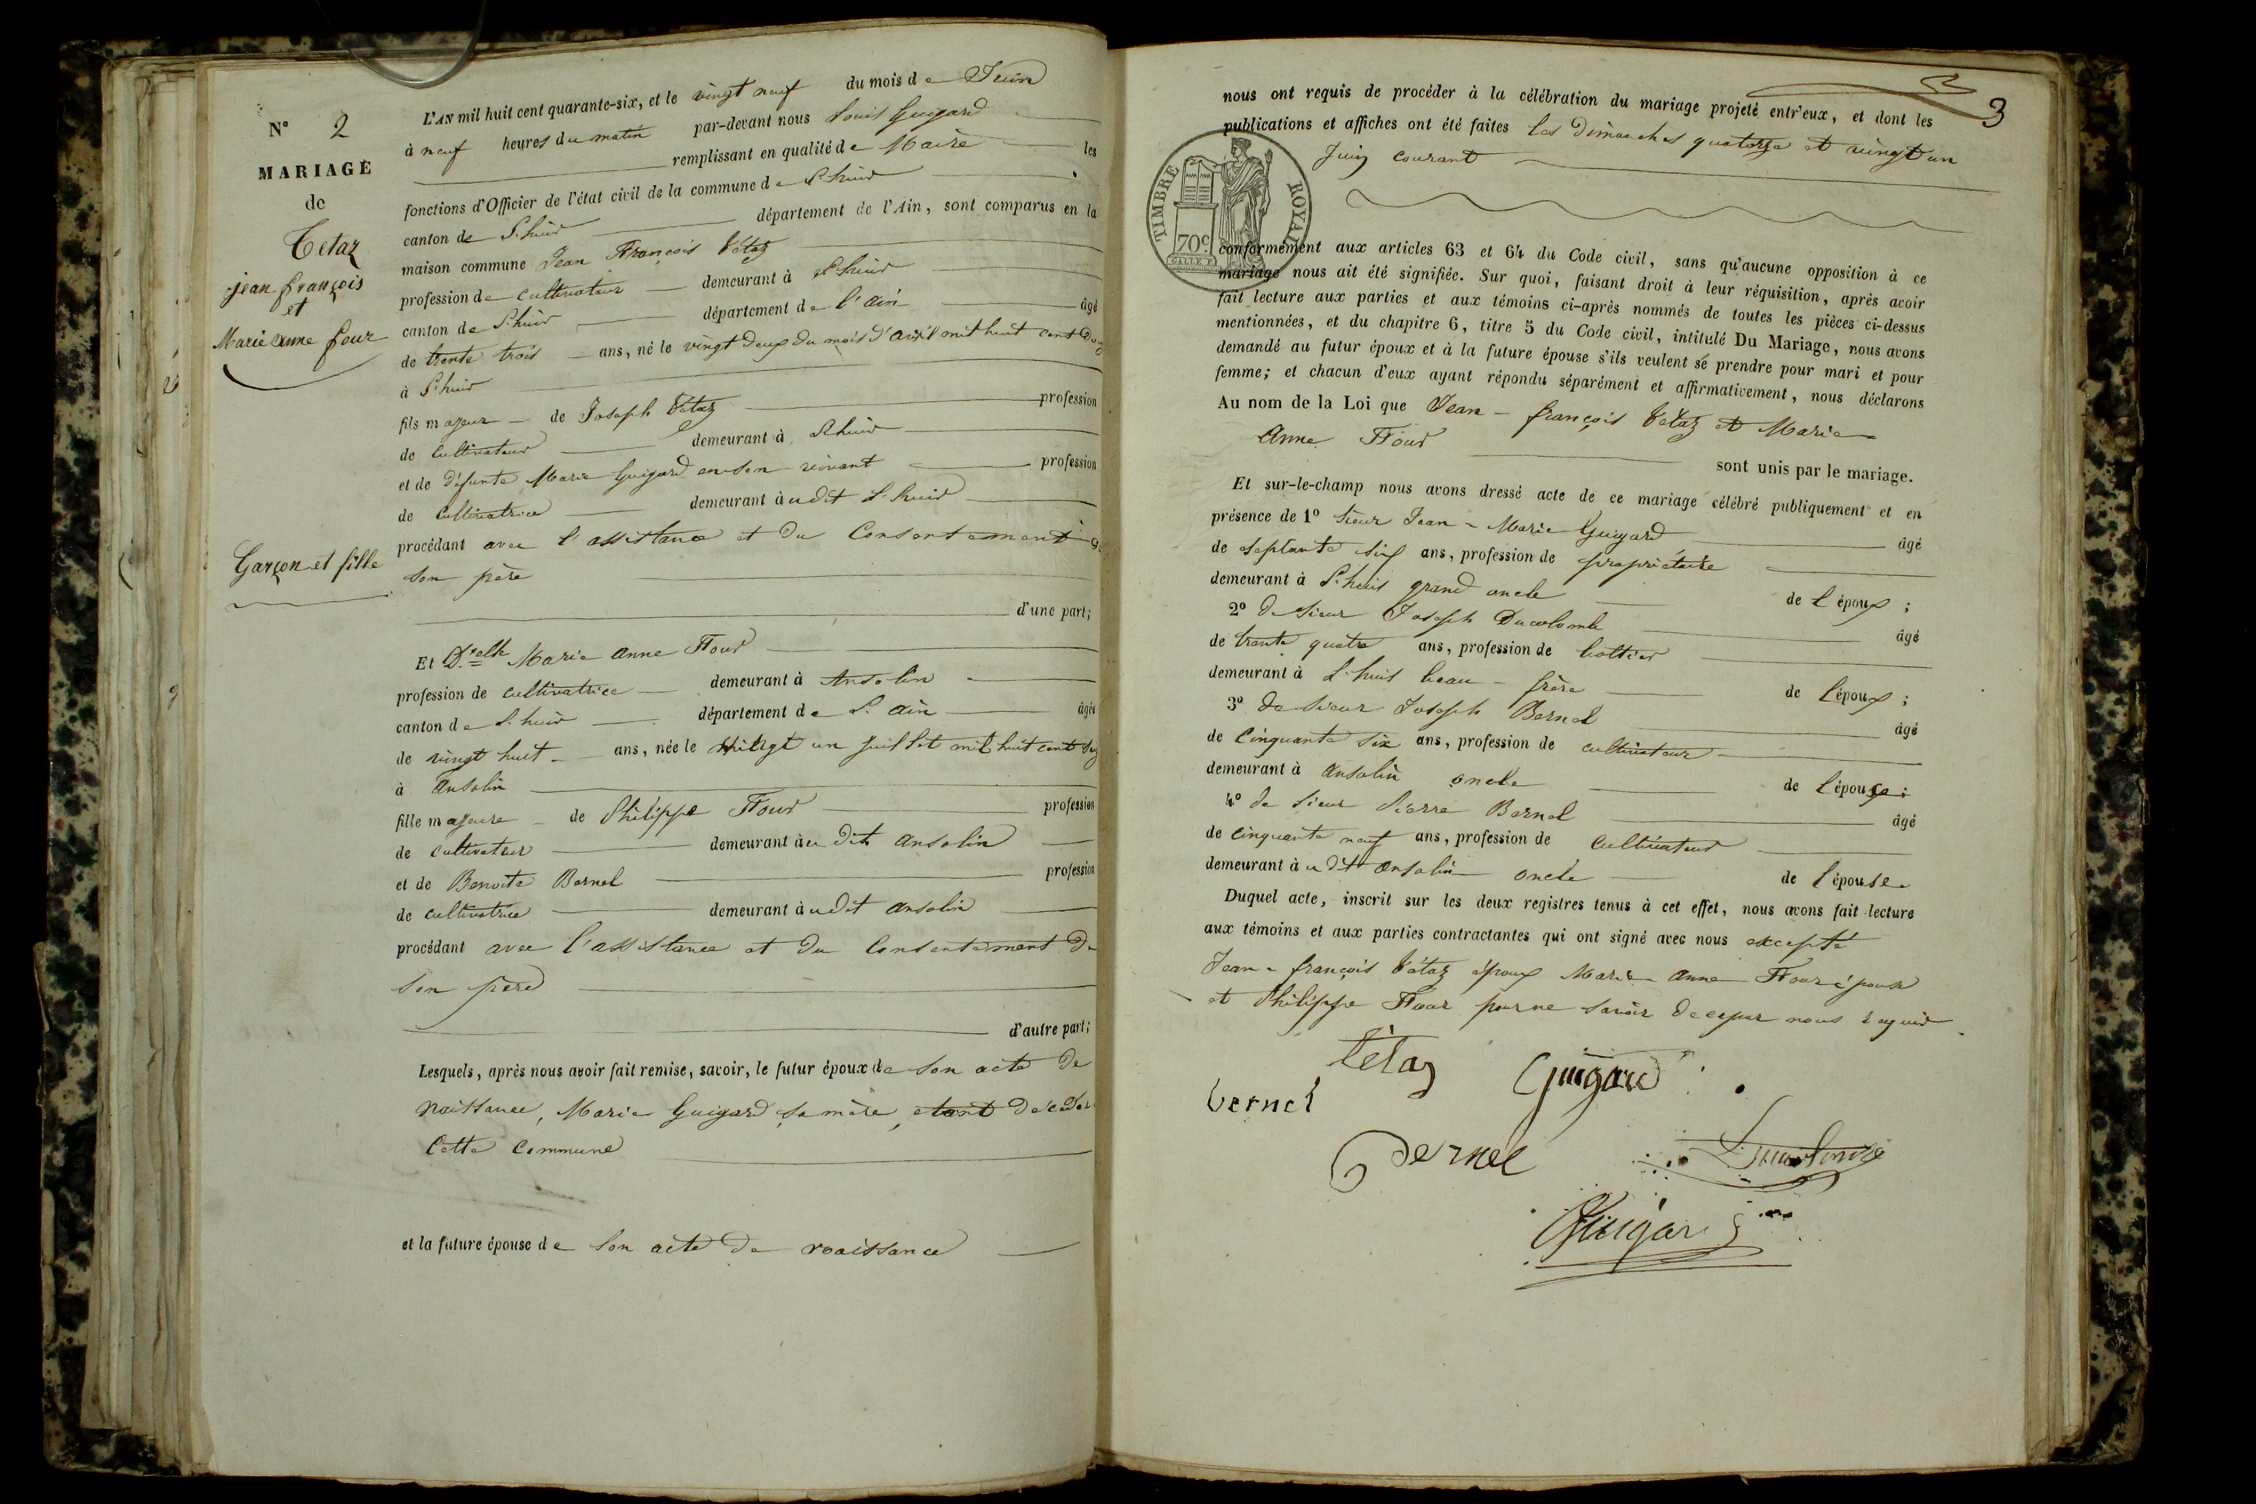 N° 2
MARIAGE
de
Tetaz
jean françois
et
Marie anne four
Garçon et fille
L'AN mil huit cent quarante-six, et le vingt neuf du mois de Juin
à neuf heures du matin par-devant nous Louis Guigard
remplissant en qualité de Maire les
fonctions d'Officier de l'état civil de la commune de L'huis
canton de L'huis département de l'Ain, sont comparus en la
maison commune Jean François Tétaz
profession de cultivateur demeurant à L'huis
canton de L'huis département de l'ain âgé
de trente trois ans, né le vingt deux du mois d'avril mil huit cent
à L'huis
fils majeur de Joseph Tétaz profession
de cultivateur demeurant à L'huis
et de défunte Marie Guigard en son vivant profession
de cultivatrice demeurant à udit L'huis
procédant avec l'assistance et du Consentement
son père
d'une part;
Et D.elle Marie anne Four
profession de cultivatrice demeurant à Ansolin
canton de L'huis département de L'ain âgée
de vingt huit ans, née le vingt un juillet mil huit cent
à Ansolin
fille majeure de Philippe Four profession
de cultivateur demeurant à u dit ansolin
et de Benoite Bernel profession
de cultivatrice demeurant à udit ansolin
procédant avec l'assistance et du Consentement de
son père
d'autre part;
Lesquels, après nous avoir fait remise, savoir, le futur époux de son acte de
naissance, Marie Guigard sa mère, etant
Cette Commune
et la future épouse de son acte de naissance
3
nous ont requis de procéder à la célébration du mariage projeté entr'eux, et dont les
publications et affiches ont été faites les Dimanches quatorze et vingt un
Juin courant
TIMBRE ROYAL
70c.
conformément aux articles 63 et 64 du Code civil, sans qu'aucune opposition à ce
mariage nous ait été signifiée. Sur quoi, faisant droit à leur réquisition, après avoir
fait lecture aux parties et aux témoins ci-après nommés de toutes les pièces ci-dessus
mentionnées, et du chapitre 6, titre 5 du Code civil, intitulé Du Mariage, nous avons
demandé au futur époux et à la future épouse s'ils veulent se prendre pour mari et pour
femme; et chacun d'eux ayant répondu séparément et affirmativement, nous déclarons
Au nom de la Loi que Jean - françois Tétaz et Marie
Anne Four
sont unis par le mariage.
Et sur-le-champ nous avons dressé acte de ce mariage célébré publiquement et en
présence de 1° Sieur Jean - Marie Guigard âgé
de septante six ans, profession de propriétaire
demeurant à L'huis grand oncle de l'époux;
2° de Sieur Joseph Ducolomb âgé
de trente quatre ans, profession de bottier
demeurant à L'huis beau - frère de l'époux;
3° de Sieur Joseph Bernel âgé
de cinquante six ans, profession de cultivateur
demeurant à ansolin oncle de l'épouse;
4° de Sieur Pierre Bernel âgé
de cinquante neuf ans, profession de cultivateur
demeurant à u dit ansolin oncle de l'épouse
Duquel acte, inscrit sur les deux registres tenus à cet effet, nous avons fait lecture
aux témoins et aux parties contractantes qui ont signé avec nous excepté
Jean - françois Tétaz époux Marie - anne Four épouse
et Philippe Four pour ne savoir de ce par nous requis
Tétaz Guigard
bernel
Bernel
Guigard